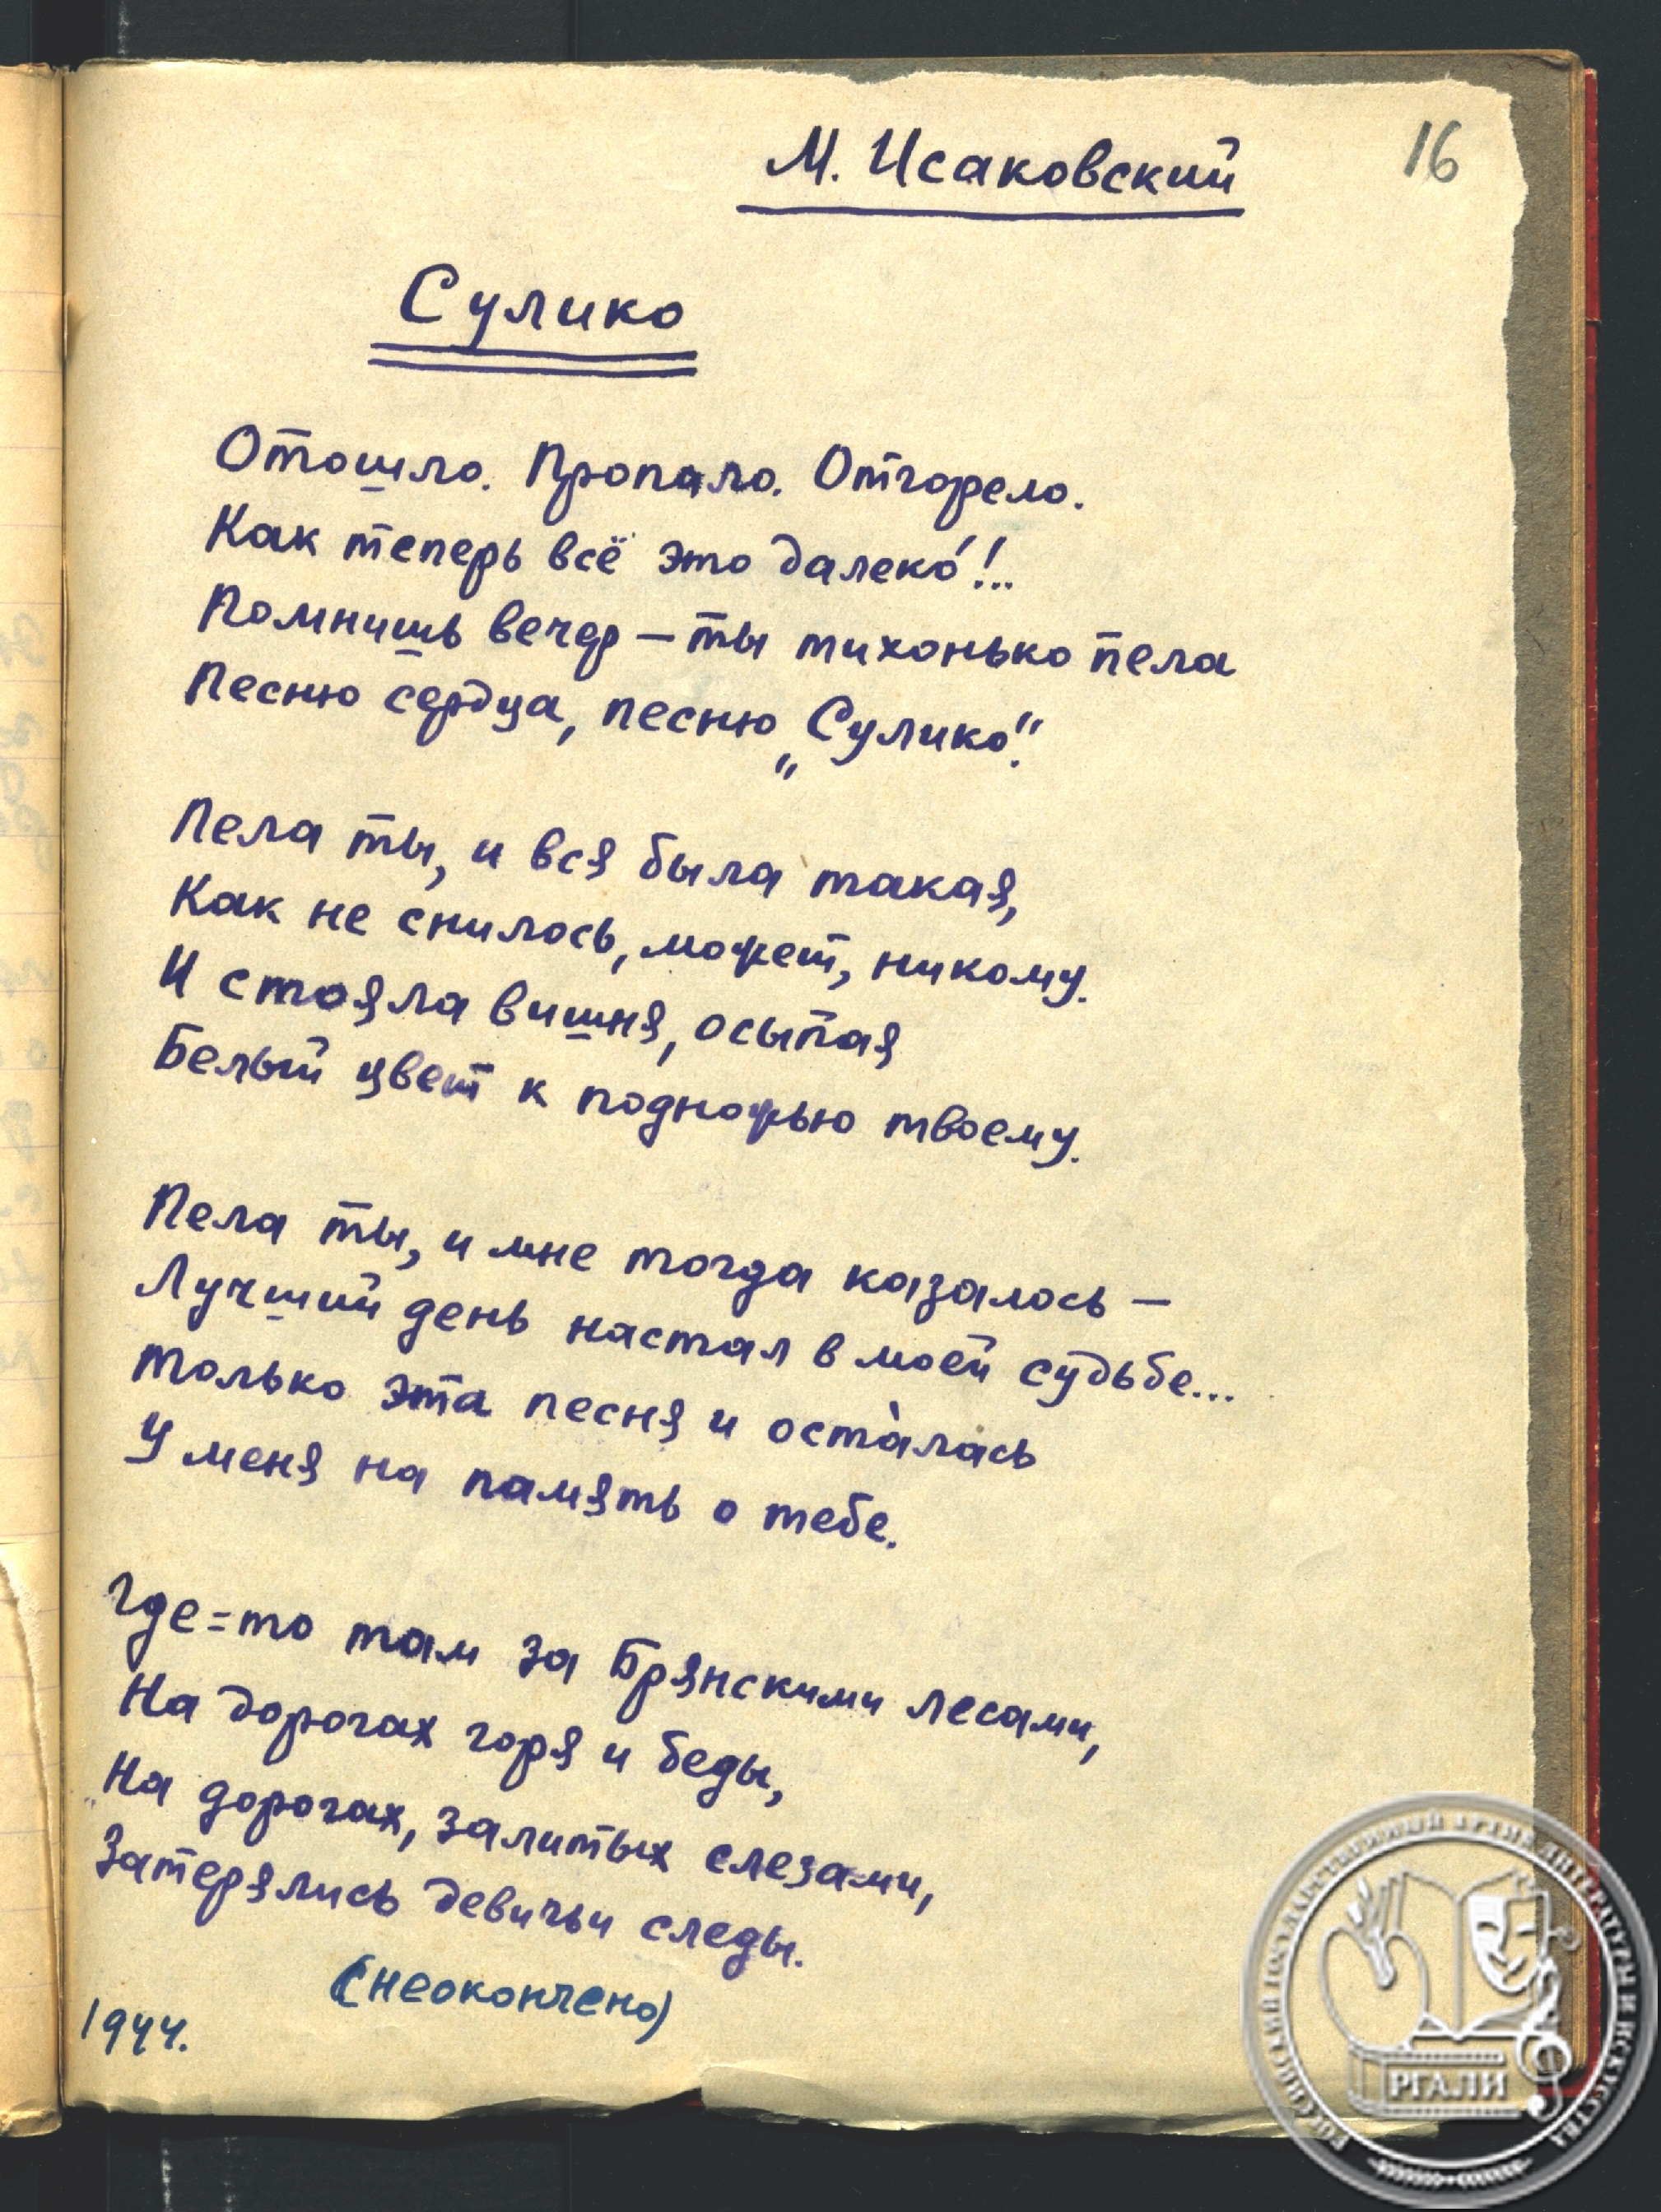 М. Исаковский
16
Сулико
Отошло. Пропало. Отгорело.
Как теперь всё это далеко́!..
Помнишь вечер – ты тихонько пела
Песню сердца, песню „Сулико“.
Пела ты, и вся была такая,
Как не снилось, может, никому.
И стояла вишня, осыпая
Белый цвет к подножью твоему.
Пела ты, и мне тогда казалось –
Лучший день настал в моей судьбе...
Только эта песня и оста̀лась
У меня на память о тебе.
Где=то там за Брянскими лесами,
На дорогах горя и беды,
На дорогах, залитых слезами,
Затерялись девичьи следы.
(неокончено)
1944.
РОССИЙСКИЙ ГОСУДАРСТВЕННЫЙ АРХИВ ЛИТЕРАТУРЫ И ИСКУССТВА
РГАЛИ